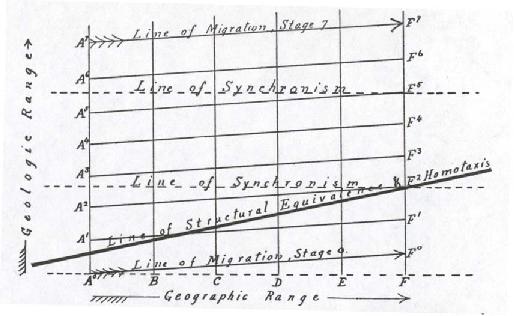 Line of Migration, Stage 7
F⁷
A⁷
F⁶
A⁶
Line of Synchronism
F⁵
A⁵
F⁴
A⁴
F³
A³
Line of Synchronism
F² Homotaxis
A²
Line of Structural Equivalence
F¹
A¹
Line of Migration, Stage 0.
F⁰
A⁰ B C D E F
Geographic Range
Geologic Range